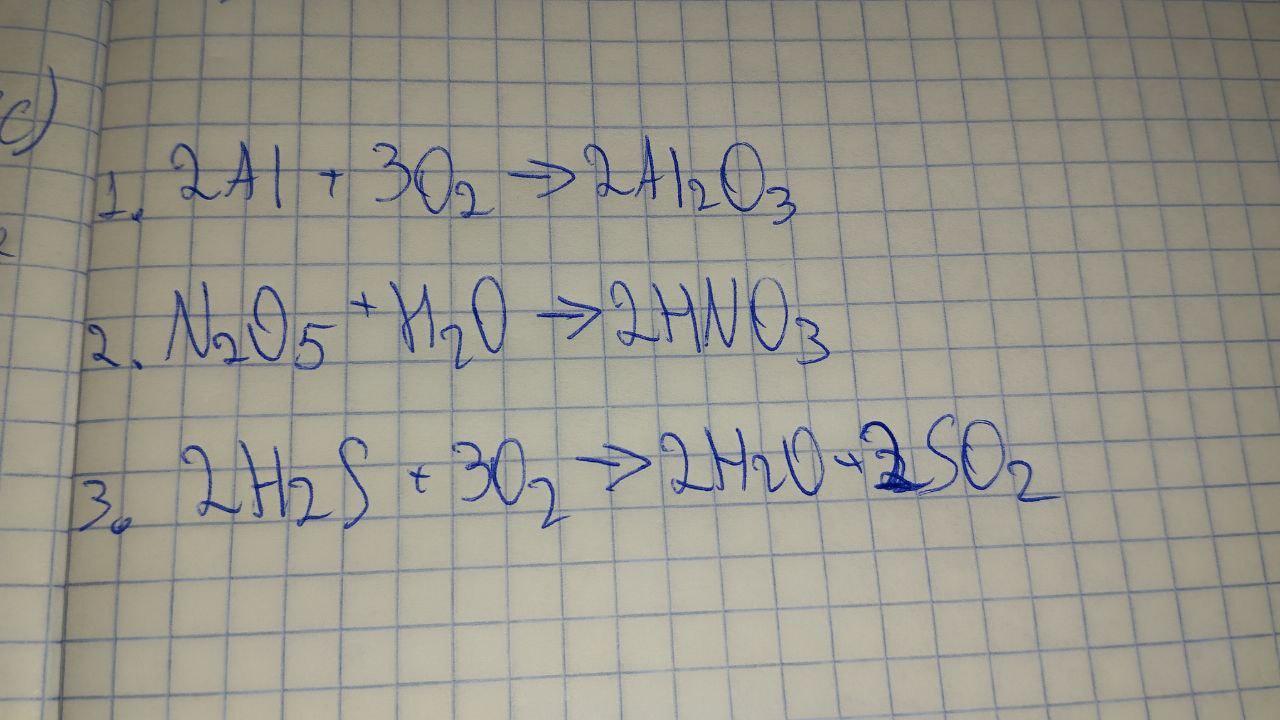 c)
1. 2Al + 3O₂ → 2Al₂O₃
2. N₂O₅ + H₂O → 2HNO₃
3. 2H₂S + 3O₂ → 2H₂O + 2SO₂